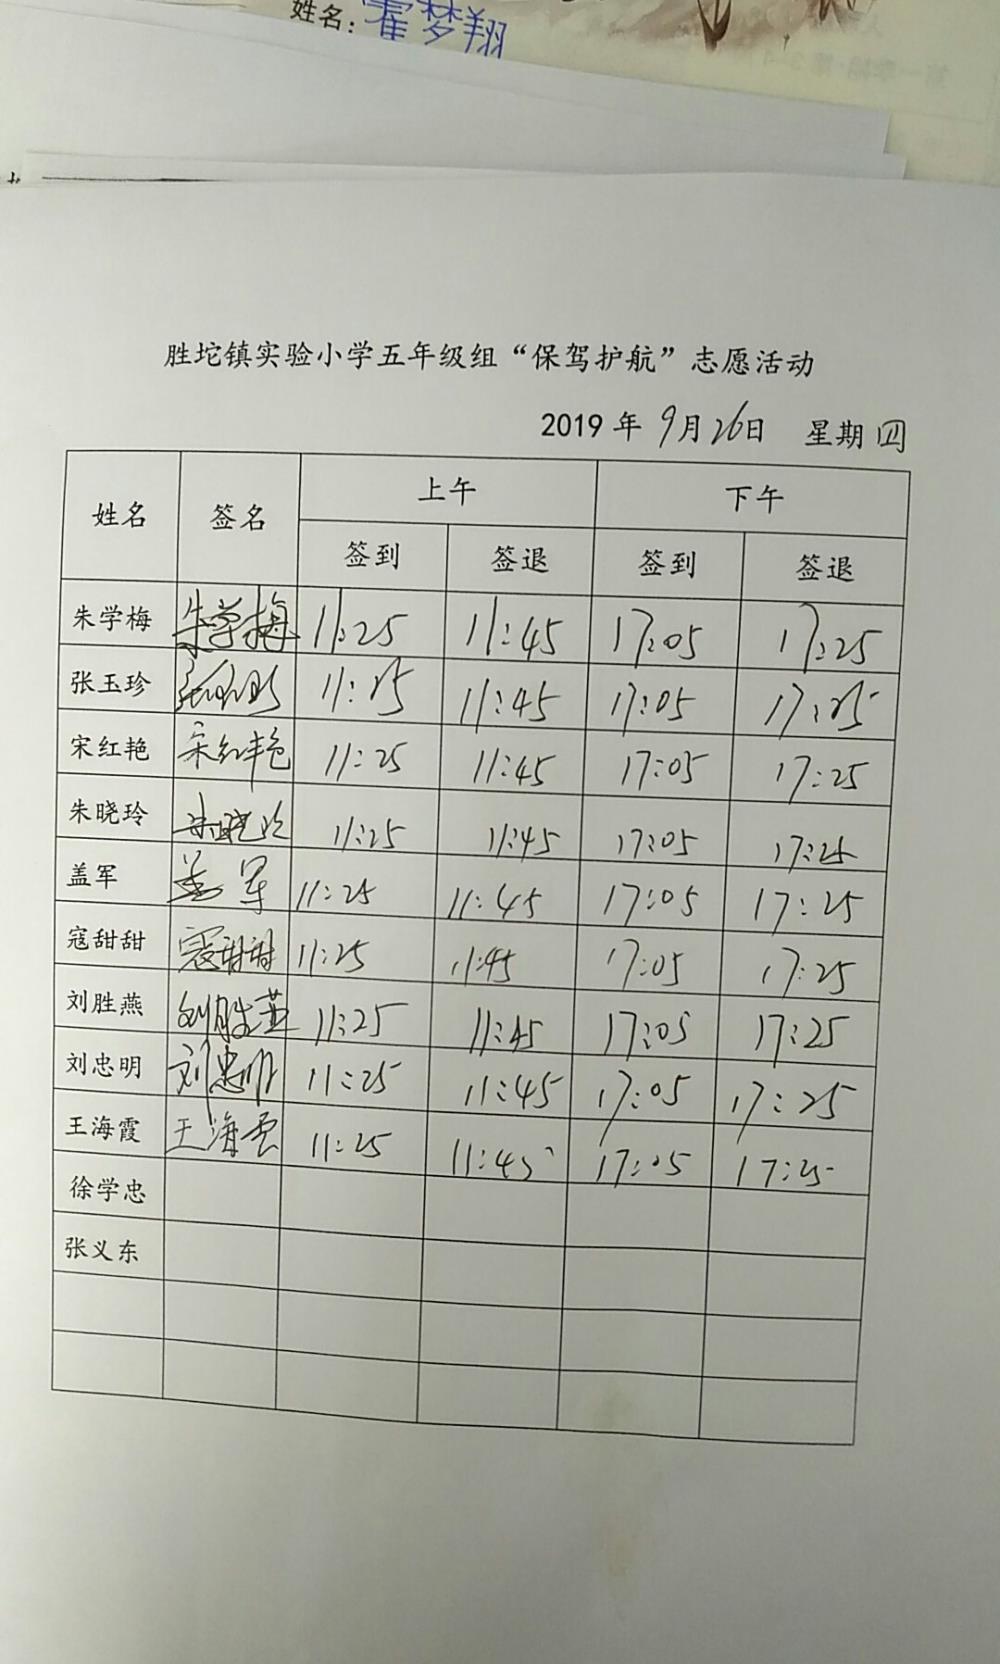 姓名:霍梦翔
胜坨镇实验小学五年级组“保驾护航”志愿活动
2019年9月26日 星期四
姓名 签名 上午 下午
签到 签退 签到 签退
朱学梅 朱学梅 11:25 11:45 17:05 17:25
张玉珍 张玉珍 11:25 11:45 17:05 17:25
宋红艳 宋红艳 11:25 11:45 17:05 17:25
朱晓玲 朱晓玲 11:25 11:45 17:05 17:25
盖军 盖军 11:25 11:45 17:05 17:25
寇甜甜 寇甜甜 11:25 11:45 17:05 17:25
刘胜燕 刘胜燕 11:25 11:45 17:05 17:25
刘忠明 刘忠明 11:25 11:45 17:05 17:25
王海霞 王海霞 11:25 11:45 17:05 17:25
徐学忠
张义东